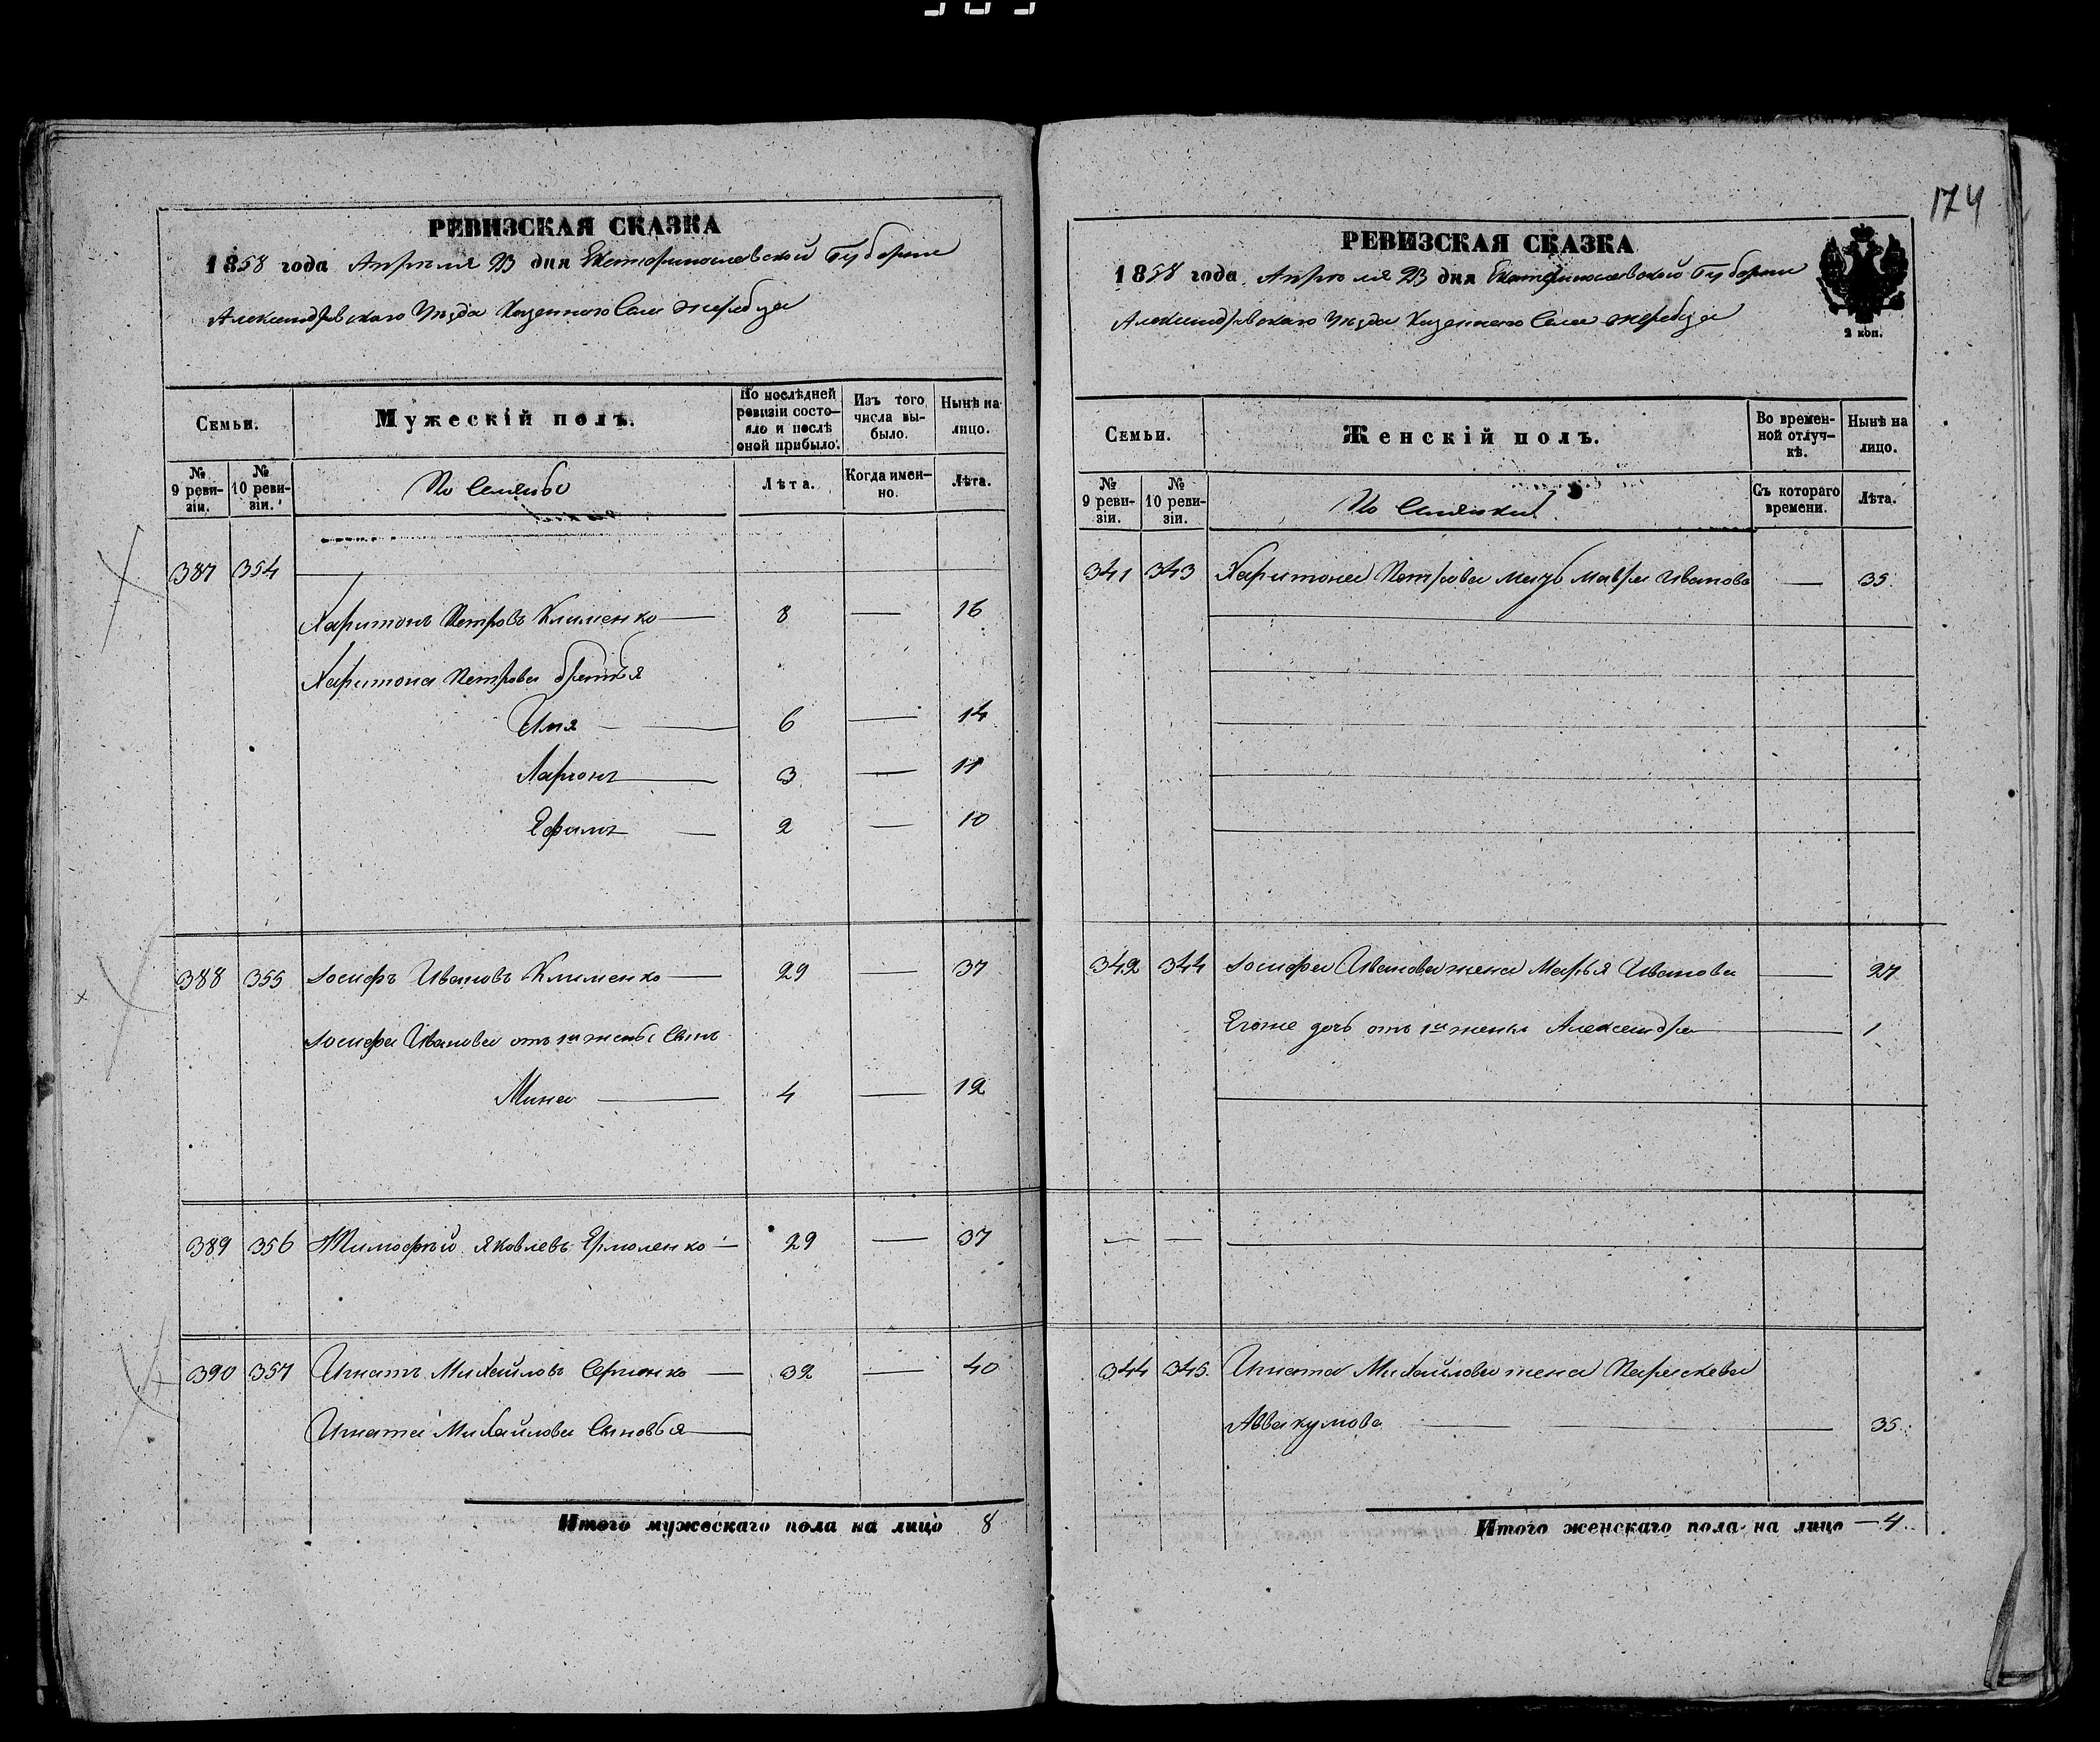 174
РЕВИЗСКАЯ СКАЗКА
1858 года Апреля 23 дня Екатеринославской Губернии
Александровскаго Уѣзда Казеннаго Села Жеребца
Семьи.
Мужескій полъ.
По послѣдней ревизіи состояло и послѣ оной прибыло.
Изъ того числа выбыло.
Нынѣ на лицо.
№ 9 ревизіи.
№ 10 ревизіи.
Лѣта.
Когда именно.
Лѣта.
387 354
Харитонъ Петровъ Клименко — 8 — 16
Харитона Петрова братья
Илья — 6 — 14
Ларіонъ — 3 — 11
Ефимъ — 2 — 10
388 355 Іосифъ Ивановъ Клименко — 29 — 37
Іосифа Иванова отъ 1й жены Сынъ
Мина — 4 — 12
389 356 Тимофѣй Яковлевъ Ермоленко — 29 — 37
390 357 Игнатъ Михайловъ — 32 — 40
Игната Михайлова Сыновья —
Итого мужескаго пола на лицо 8
РЕВИЗСКАЯ СКАЗКА
1858 года Апреля 23 дня Екатеринославской Губернии
Александровскаго Уѣзда Казеннаго Села Жеребца
2 коп.
Семьи.
Женскій полъ.
Во временной отлучкѣ.
Нынѣ на лицо.
№ 9 ревизіи.
№ 10 ревизіи.
Съ котораго времени.
Лѣта.
341 343 Харитона Петрова мать Мавра Иванова — 35.
342 344 Іосифа Иванова жена Марья Иванова — 27
Егоже дочь отъ 1й жены Александра — 1
— —
344 345. Игната Михайлова жена Параскева
Аввакумова — — 35.
Итого женскаго пола на лицо — 4.